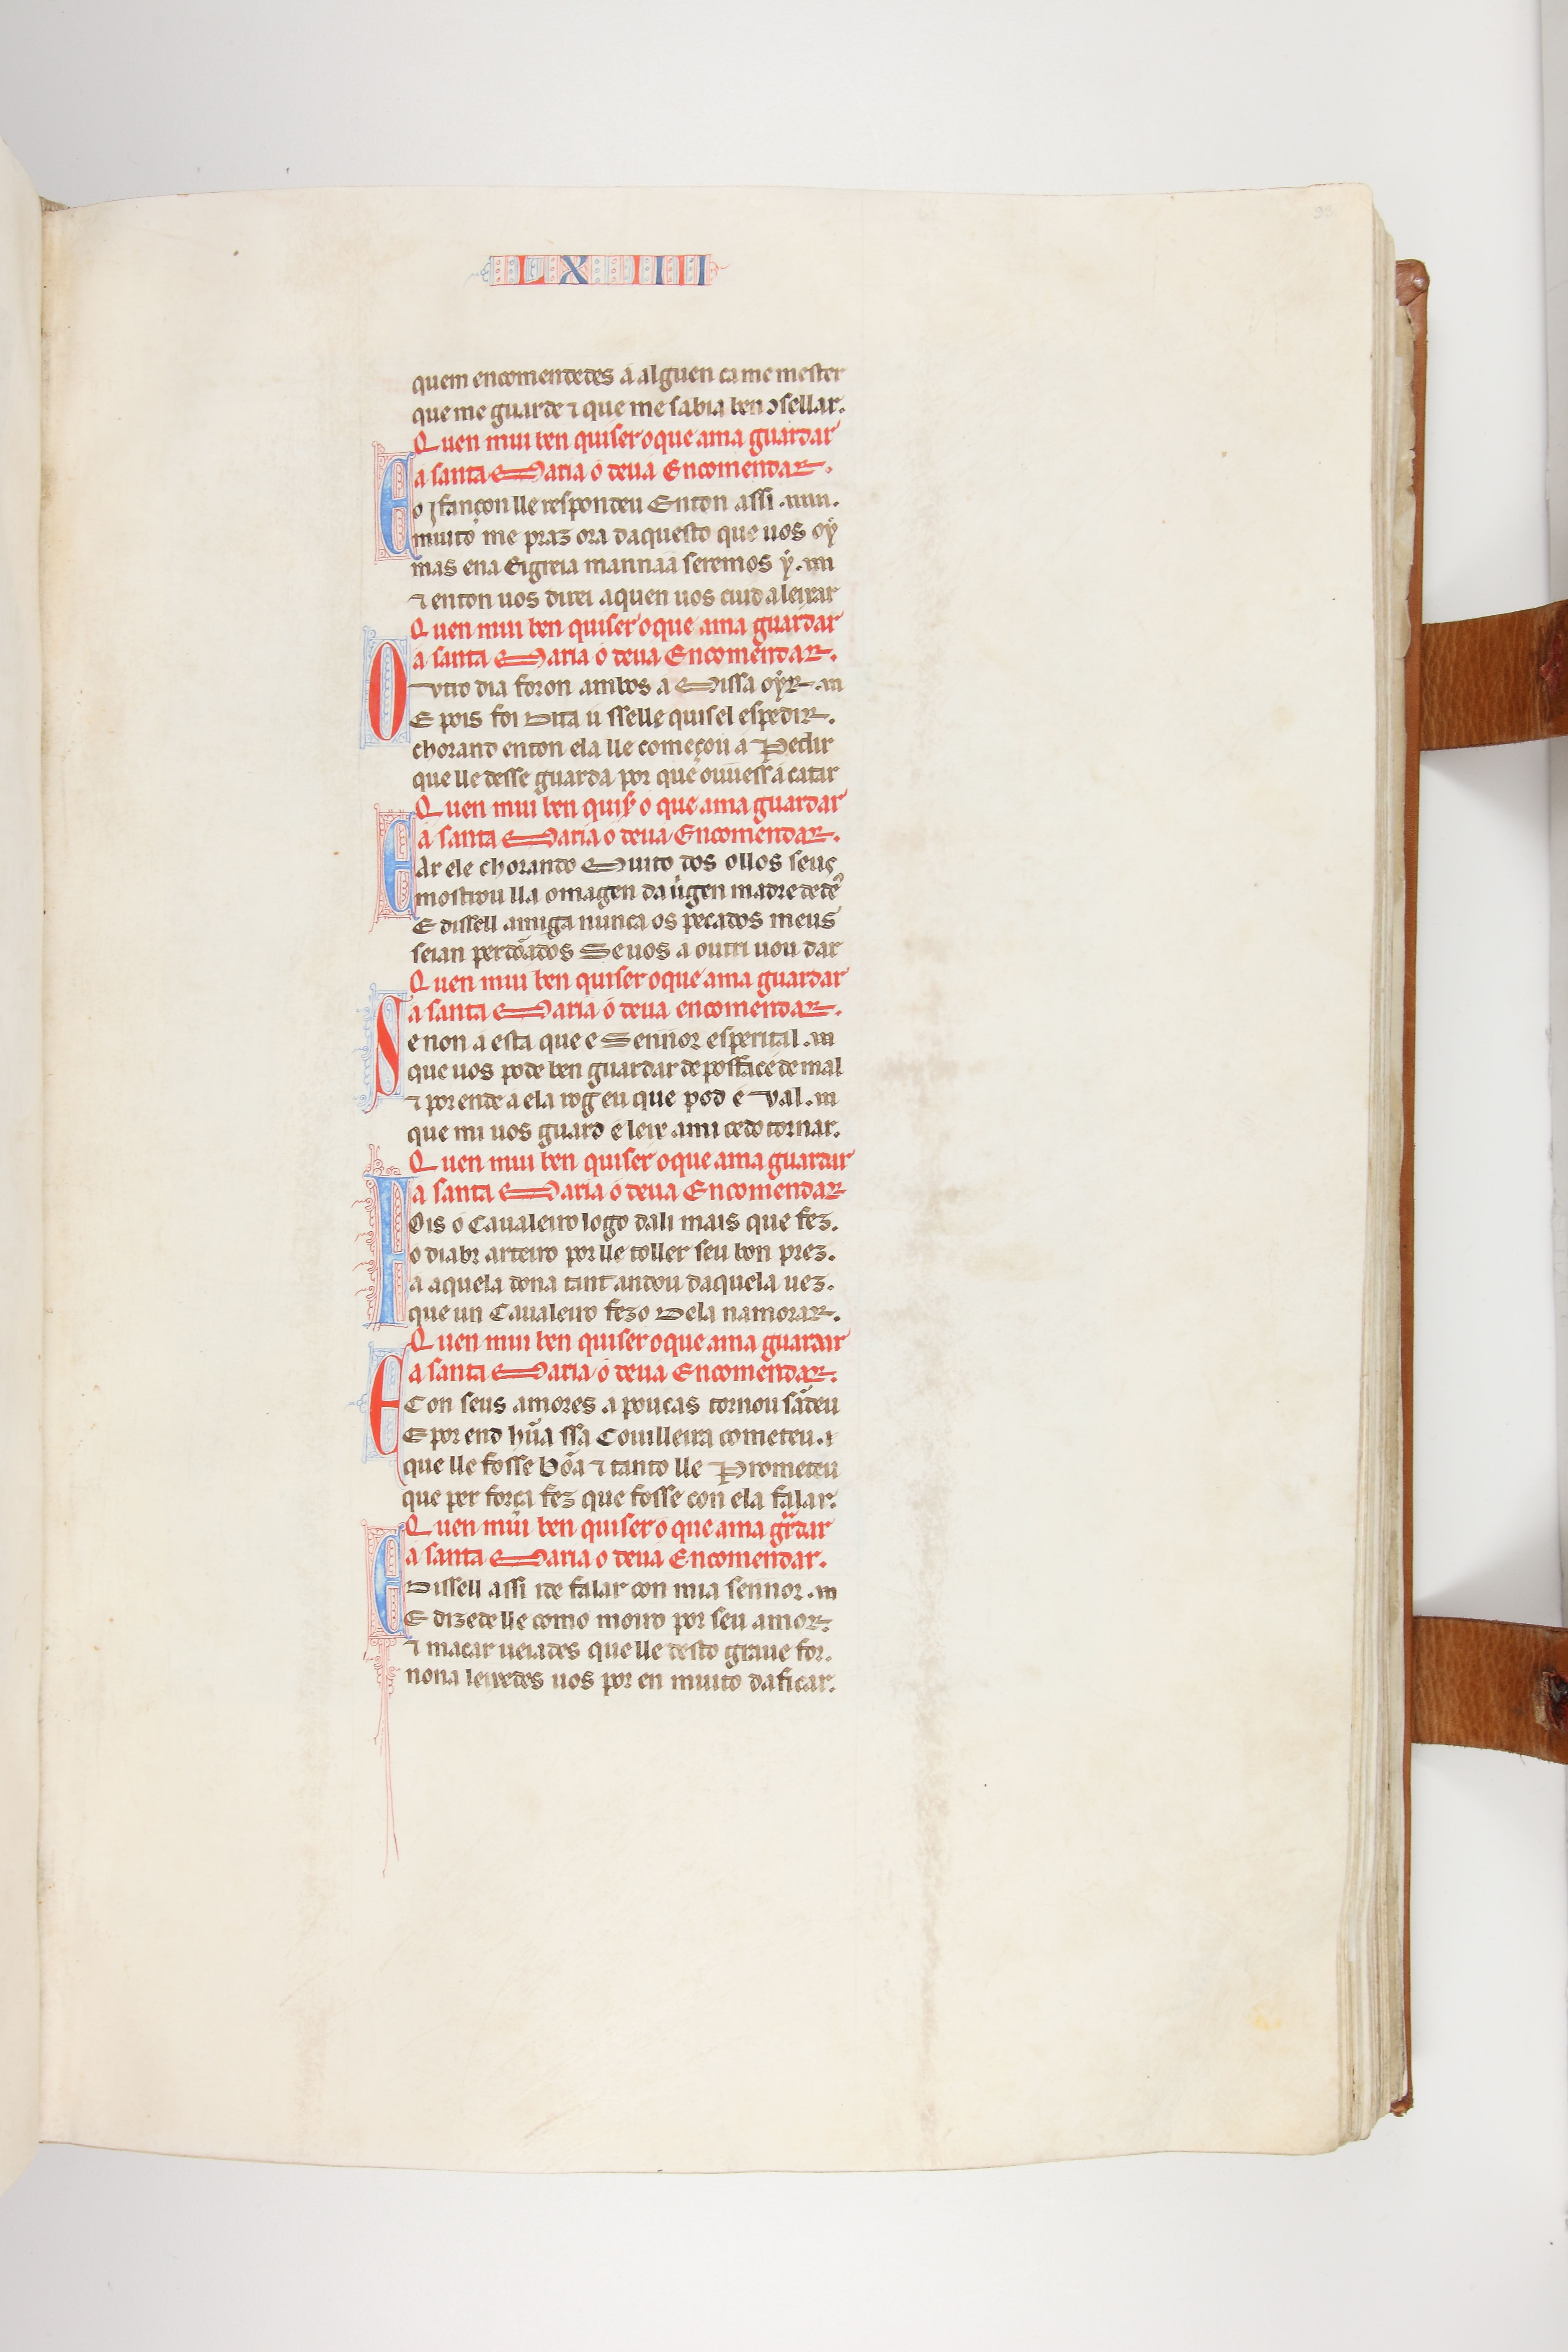 93
LXIIII
quem encomendedes a alguen ca me mester
que me guarde ⁊ que me sabia ben ↄsellar.
Quen mui ben quiser o que ama guardar
a santa Maria o deua Encomendar.
E o jfançon lle respondeu Enton assi .
muito me praz ora daquesto que uos oy
mas ena Eigreia mannaa seremos y.
⁊ enton uos direi aquen uos cuid a leixar
Quen mui ben quiser o que ama guardar
a santa Maria o deua Encomendar.
Outro dia foron ambos a Missa oyr
E pois foi Dita u sselle quis el espedir.
chorand enton ela lle começou a Pedir
que lle desse guarda por que ouuess a catar
Quen mui ben quiser o que ama guardar
a santa Maria o deua Encomendar.
E Ar ele chorando Muito dos ollos seus
mostrou lla omagen da uirgen madre de de9
E dissell amiga nunca os pecados meus
seian perdõados Se uos a outri uou dar
Quen mui ben quiser o que ama guardar
a santa Maria o deua encomendar.
Se non a esta que e Sennor esperital .
que uos pode ben guardar de posface de mal
⁊ por ende a ela rog eu que pod e val.
que mi uos guard e leix ami cedo tornar.
Quen mui ben quiser o que ama guardar
a santa Maria o deua Encomendar
POis o Caualeiro logo dali mais que fez.
o diabr arteiro por lle toller seu bon prez.
a aquela dona tant andou daquela uez.
que un Caualeiro fezo Dela namorar.
Quen mui ben quiser o que ama guardar
a santa Maria o deua Encomendar.
E Con seus amores a poucas tornou sãdeu
E por end hũa ssa Couilleira cometeu.
que lle fosse bõa ⁊ tanto lle Prometeu
que per força fez que fosse con ela falar.
Quen mui ben quiser o que ama grdar
a santa Maria o deua Encomendar.
E Dissell assi ide falar con mia sennor .
E dizede lle como moiro por seu amor.
⁊ macar ueiades que lle desto graue for.
nona leixedes uos por en muito daficar.